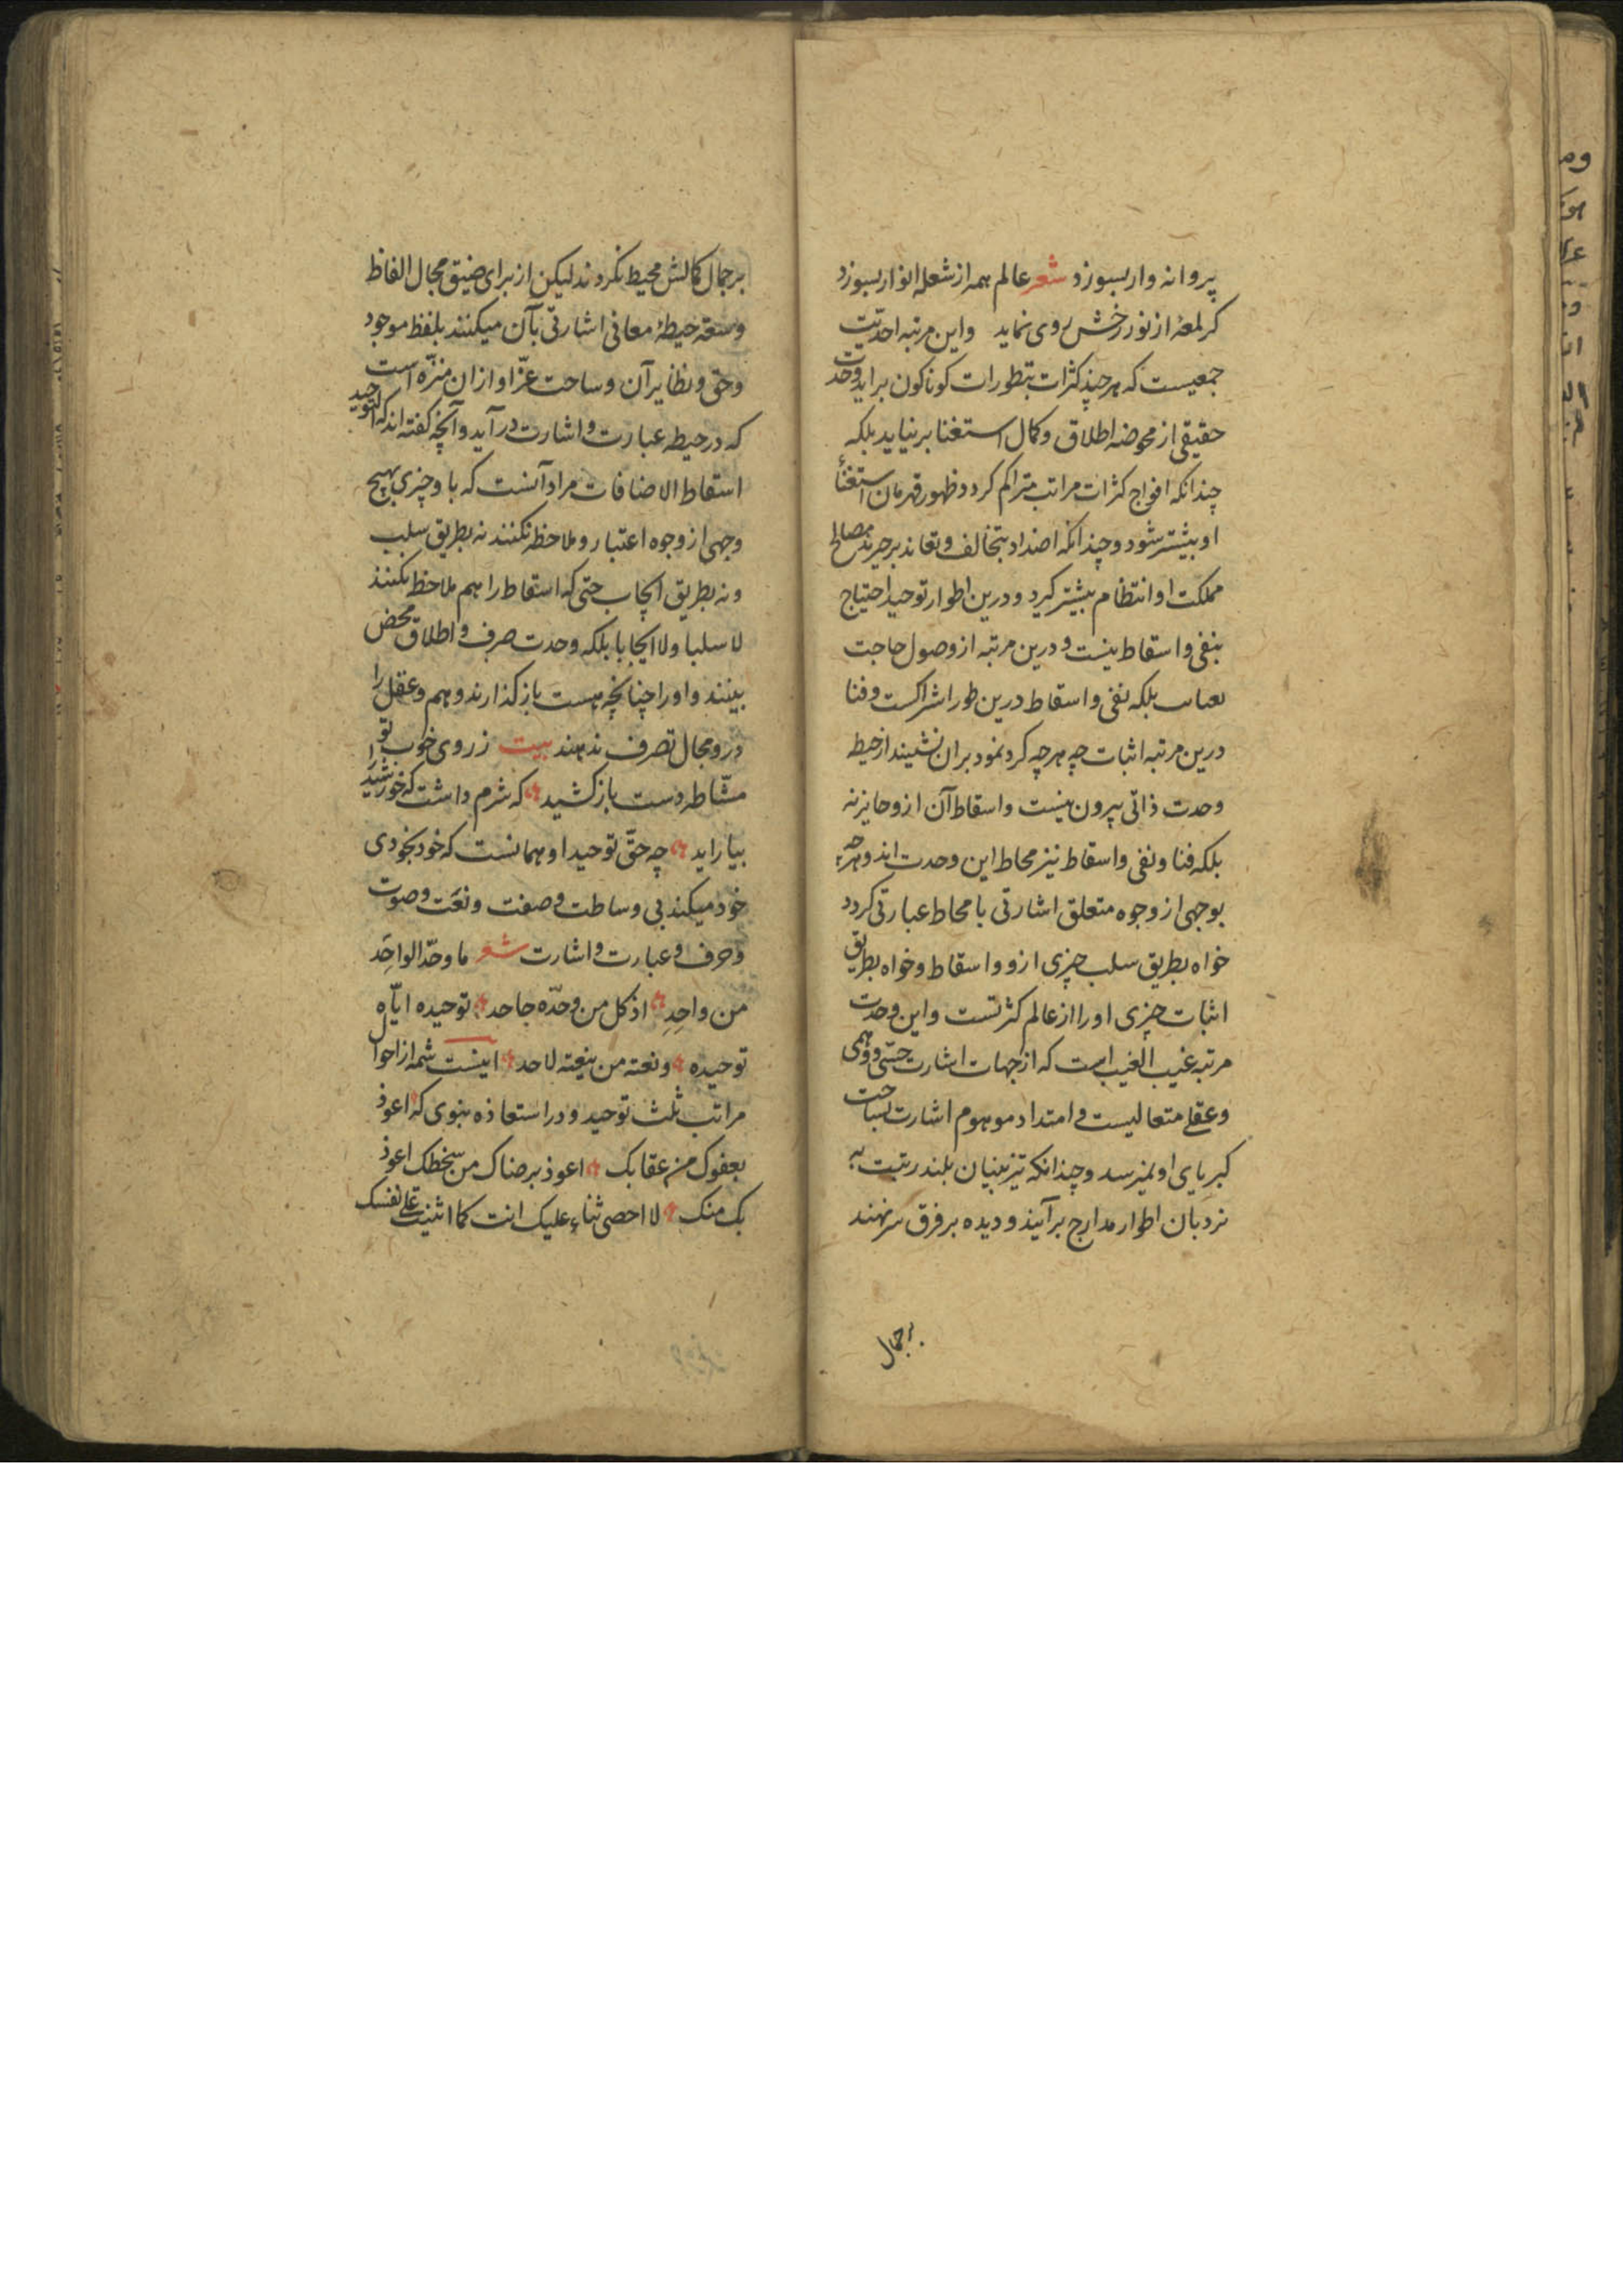 پروانه وار بسوزد شعر عالم همه از شعله انوار بسوزد
کر لمعهٔ از نور رخش روی نماید واین مرتبه احدیّت
جمعیست که هر چند کثرات بتطورات کوناکون براید وحدت
حقیقی از محوضه اطلاق وکمال استغنا برنیاید بلکه
چندانکه افواج کثرات مراتب متراکم کردد ظهور قهرمان استغنأ
او بیشتر شود وچندانکه اضداد بتخالف وتعاند برخیزند مصالح
مملکت او انتظام بیشتر کیرد ودرین اطوار توحید احتیاج
بنفی واسقاط نیست ودرین مرتبه از وصول حاجت
بلکه نفی واسقاط درین طور اشراکست وفنا
درین مرتبه اثبات چه هرچه کرد نمود بران نشیند از حیط
وحدت ذاتی بیرون نیست واسقاط آن ازو جایز نه
بلکه فنا ونفی واسقاط نیز محاط این وحدت اند وهرچه
بوجهی از وجوه متعلق اشارتی یا محاط عبارتی کردد
خواه بطریق سلب چیزی ازو واسقاط وخواه بطریق
اثبات چیزی اورا از عالم کثرتست واین وحدت
مرتبه غیب الغیب است که از جهات اشارت حسّی ووهمی
وعقلی متعالیست وامتداد موهوم اشارت بساحت
کبریای او نمیرسد وچندانکه تیزبینان بلند رتبت به
نردبان اطوار مدارج برآیند ودیده بر فرق سر نهند
برجمال
برجمال کمالش محیط نکردند لیکن از برای ضیق مجال الفاظ
وسعة حیطهٔ معانی اشارتی بآن میکنند بلفظ موجود
وحق ونظایر آن وساحت عزّ او ازان منزّه است
که در حیطه عبارت واشارت درآید وآنچه کفته اند که التوحید
اسقاط الاضافات مراد آنست که با وچیزی بهیچ
وجهی از وجوه اعتبار وملاحظه نکنند نه بطریق سلب
ونه بطریق ایجاب حتی که اسقاط را هم ملاحظه نکنند
لا سلبا ولا ایجابا بلکه وحدت صرف واطلاق محض
بینند واورا چنانچه هست باز کذارند ووهم وعقل را
درو مجال تصرف ندهند بیت ز روی خوب تو
مشّاطه دست باز کشید که شرم داشت که خورشید را
بیاراید چه حقّ توحید او همانست که خود بخودی
خود میکند بی وساطت وصفت ونعت وصوت
وحرف وعبارت واشارت شعر ما وحّد الواحد
من واحدِ اذ کل من وحّده جاحد توحیده ایّاه
توحیده ونعته من ینعته لاحد اینست شمه از احوال
مراتب ثلث توحید ودر استعاذه نبوی که اعوذ
بعفوک من عقابک اعوذ برضاک من سخطک اعوذ
بک منک لا احصی ثناء علیک انت کما اثنیت علی نفسک